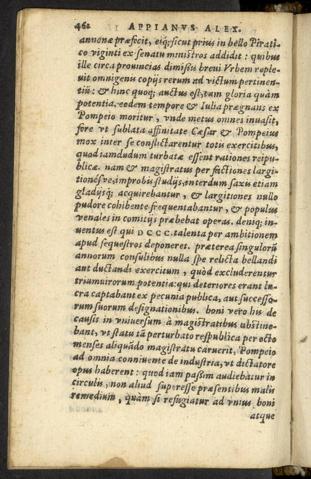 462 APPIANVS ALEX.
annonæ præfecit, eiq́; sicut prius in bello Pirati-
co viginti ex senatu ministros addidit : quibus
ille circa prouincias dimissis breui Vrbem reple-
uit omnigenu copijs rerum ad victum pertinen-
tiũ: & hinc quoq; auctus est, tam gloria quàm
potentia. eodem tempore & Iulia prægnans ex
Pompeio moritur, vnde metus omnes inuasit,
fore vt sublata affinitate Cæsar & Pompeius
mox inter se conflictarentur totu exercitibus,
quod iamdudum turbatæ essent rationes reipu-
blicæ. nam & magistratus per factiones largi-
tionesue, improbis studijs, interdum saxis etiam
gladijsq́; acquirebantur, & largitiones nullo
pudore cohibente frequentabantur, & populus
venales in comitijs præbebat operas. deniq; in-
uentus est qui DCCC. talenta per ambitionem
apud sequestros deponeret. præterea singulorũ
annorum consulibus nulla spe relicta bellandi
aut ductandi exercitum, quòd excluderentur
triumuirorum potentia: qui deteriores erant lu-
cra captabant ex pecunia publica, aut successo-
rum suorum designationibus. boni vero his de
causis in vniuersum à magistratibus abstine-
bant, vt statu tã perturbato respublica per octo
menses aliquãdo magistratu caruerit, Pompeio
ad omnia conniuente de industria, vt dictatore
opus haberent : quod iam passim audiebatur in
circulis, non aliud superesse præsentibus malis
remedium, quàm si refugiatur ad vnius boni
atque